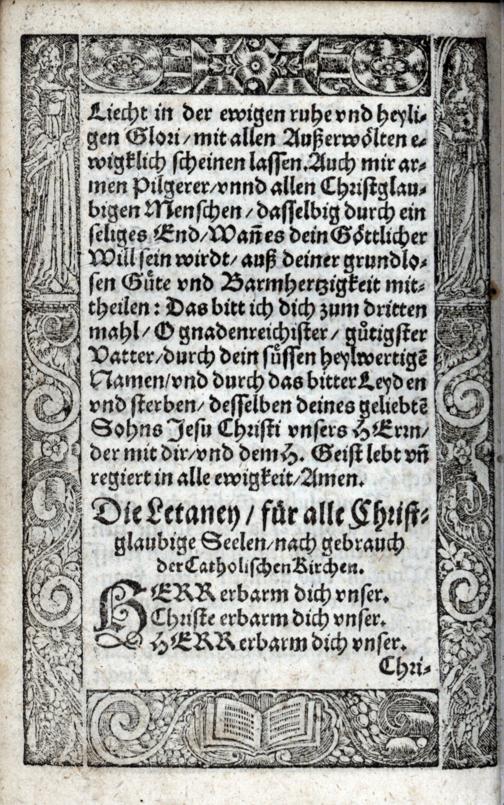 Liecht in der ewigen ruhe vnd heyli-
gen Glori/mit allen Außerwölten e-
wigklich scheinen lassen.Auch mir ar-
men Pilgerer/vnnd allen Christglau-
bigen Menschen/dasselbig durch ein
seliges End/Wañ es dein Göttlicher
Will sein wirdt/auß deiner grundlo-
sen Güte vnd Barmhertzigkeit mit-
theilen: Das bitt ich dich zum dritten
mahl/O gnadenreichister/gütigster
Vatter/durch dein süssen heylwertigẽ
Namen/vnd durch das bitter Leyden
vnd sterben/desselben deines geliebtẽ
Sohns Jesu Christi vnsers HErrn/
der mit dir/vnd dem H. Geist lebt vñ
regiert in alle ewigkeit/Amen.
Die Letaney/für alle Christ-
glaubige Seelen/nach gebrauch
der Catholischen Kirchen.
HERR erbarm dich vnser.
Christe erbarm dich vnser.
HERR erbarm dich vnser.
Chri-